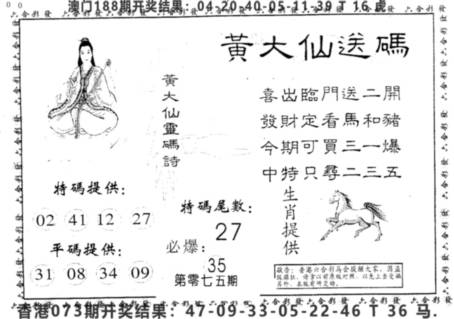 澳门188期开奖结果：04-20-40-05-11-39 T 16 虎
黃大仙送碼
黃大仙靈碼詩
喜出臨門送二開
發財定看馬和豬
今期可買三一爆
中特只尋二三五
特碼提供：
02 41 12 27
平码提供：
31 08 34 09
特碼尾數：
27
必爆：
35
第零七五期
生肖提供
香港073期开奖结果：47-09-33-05-22-46 T 36 马.